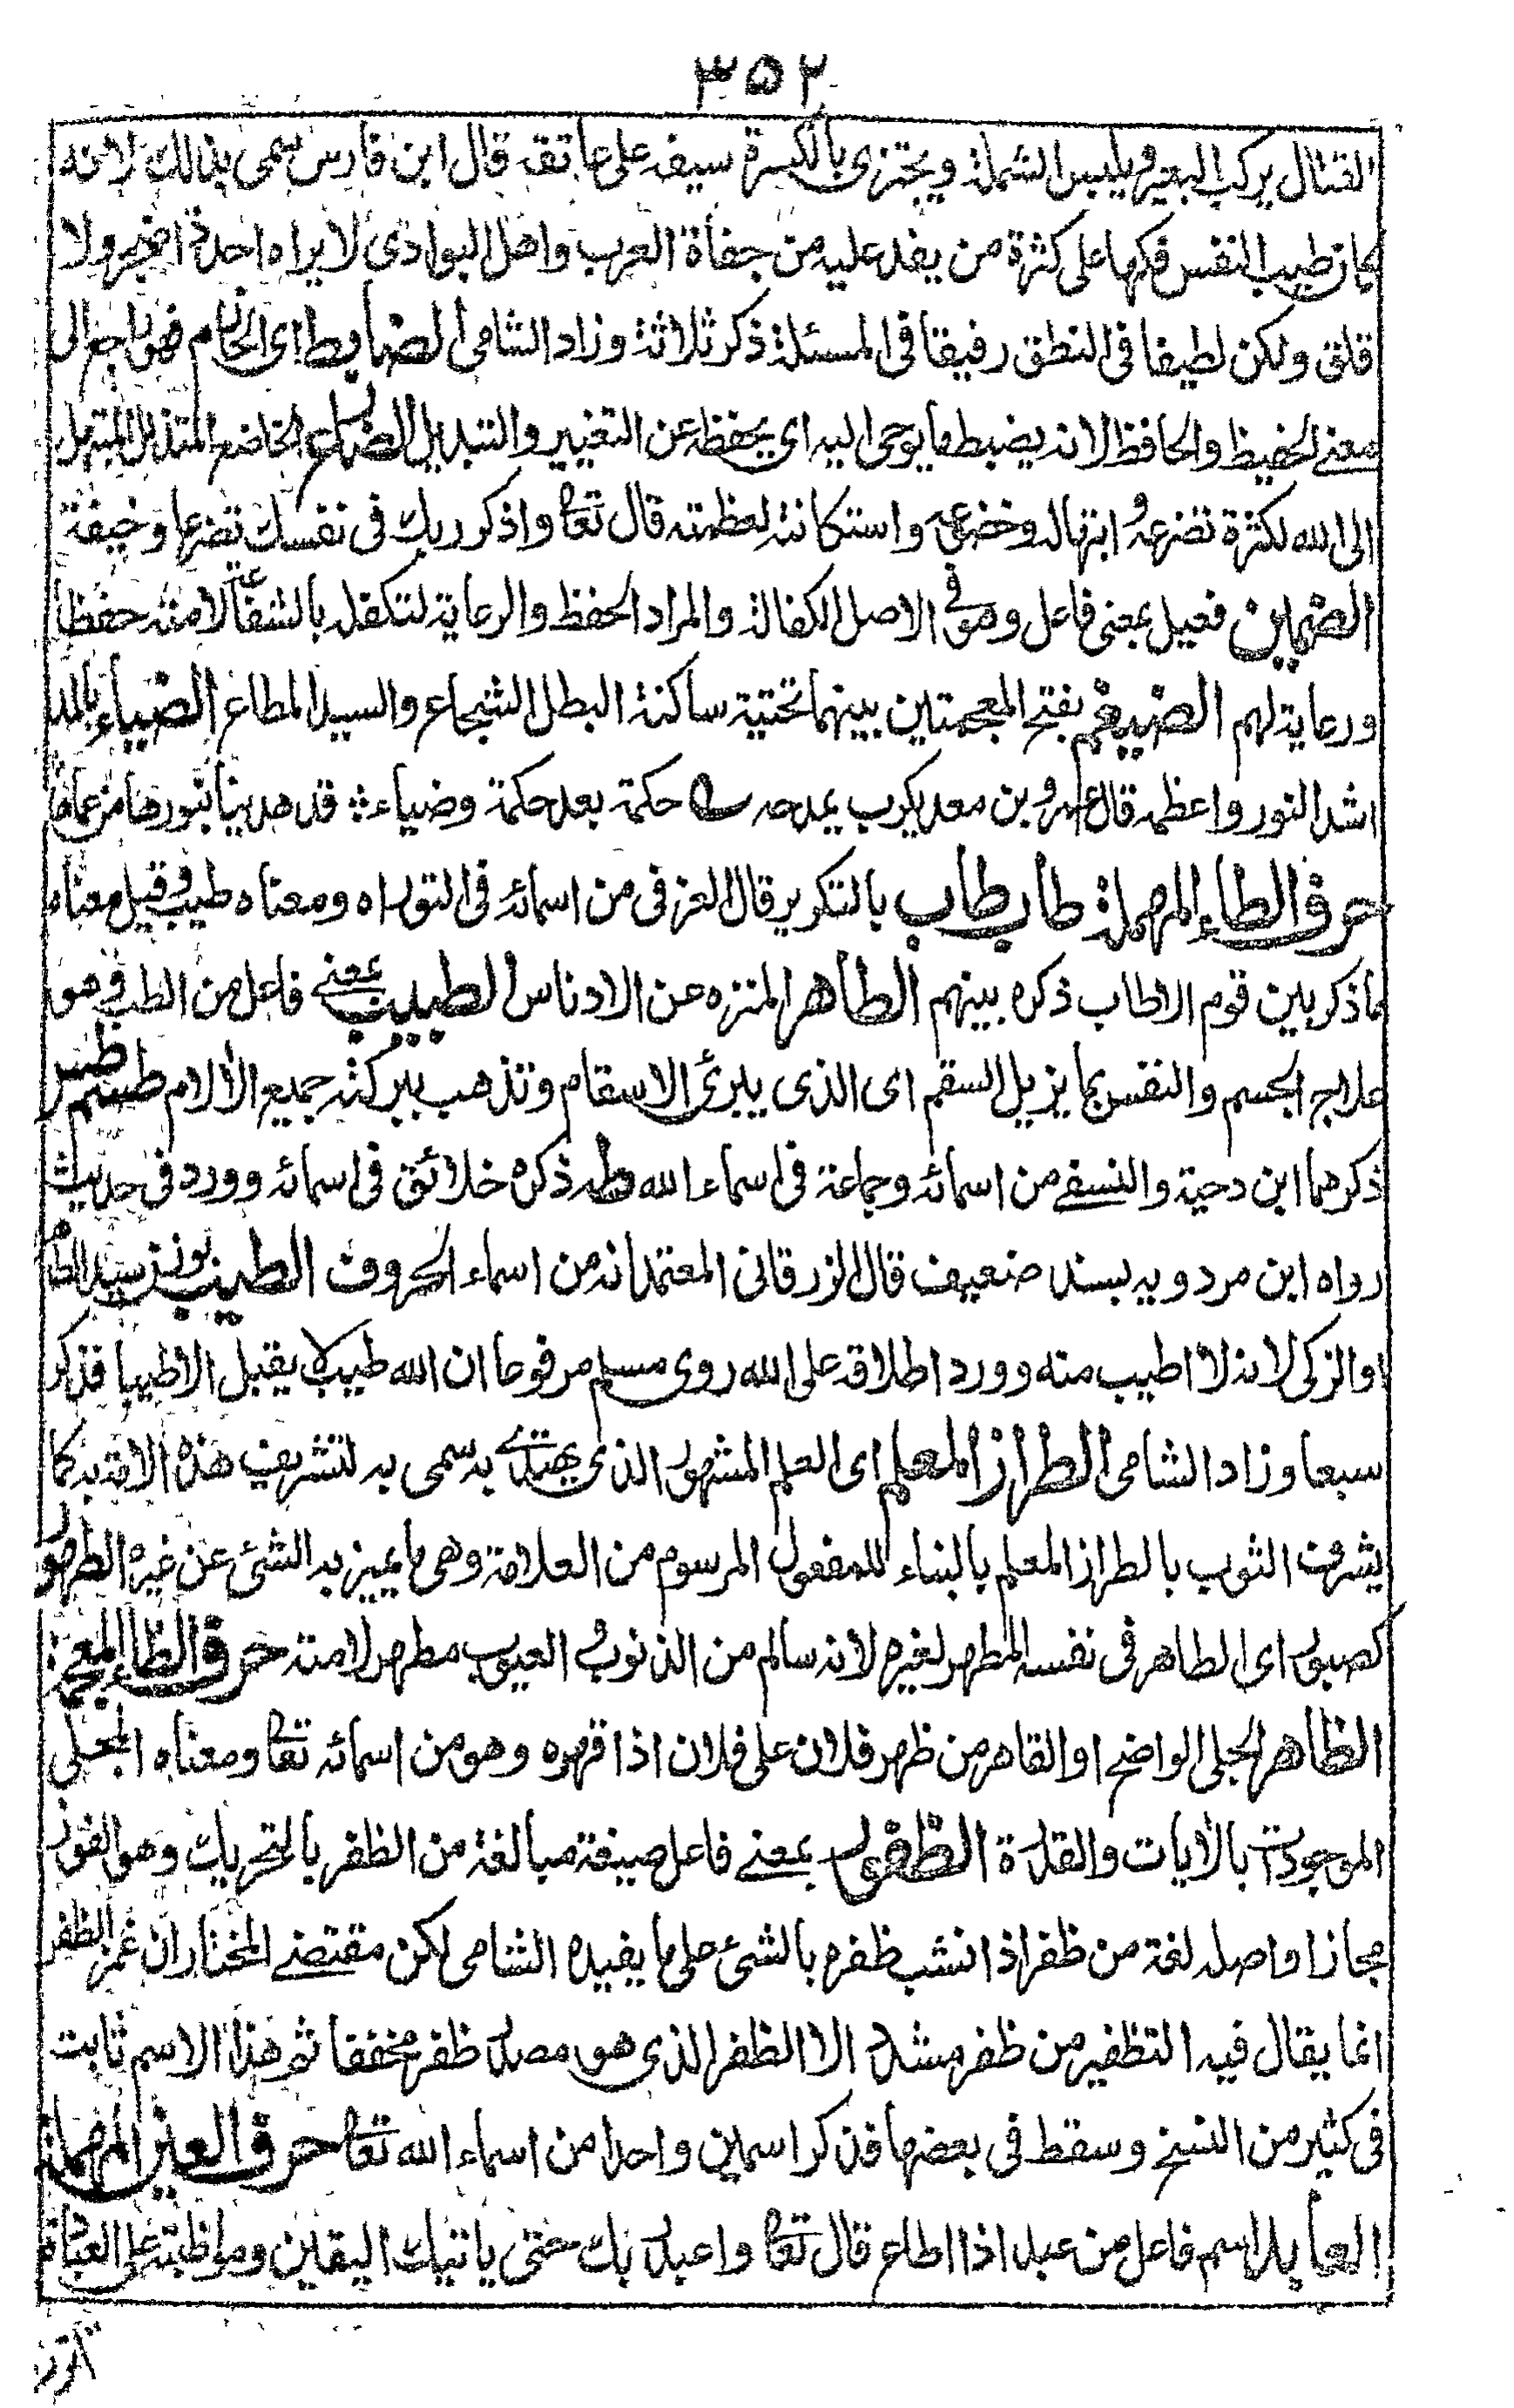 ٣٥٢
القتال يركب البعير ويلبس الشملة ويجتزى بالكسرة سيفه على عاتقه قال ابن فارس سمى بذالك لانه
كان طيب النفس فكها على كثرة من يفد عليه من جفاة العرب واهل البوادى لا يراه احد ذا ضجر ولا
قلق ولكن لطيفا فى النطق رفيقا فى المسئلة ذكر ثلاثة وزاد الشامى الضابط اى الحازم فهو راجع الى
معنى الحفيظ والحافظ لانه يضبط ما يوحى اليه اى يحفظه عن التغيير والتبديل الضارع الخاضع المتذلل المبتهل
الى الله لكثرة تضرعه و ابتهاله وخضوعه واستكانته لعظمته قال تعا واذكر ربك فى نفسك تضرعا وخيفة
الضمين فعيل بمعنى فاعل وهو فى الاصل الكفالة والمراد الحفظ والرعاية لتكفله بالشفاعة لامته حفظا
ورعاية لهم الضيغم بفتح المعجمتين بينهما تحتية ساكنة البطل الشجاع والسيد المطاع الضياء بالمد
اشد النور واعظمه قال عمرو بن معديكرب يمدحه حكمة بعد حكمة وضياء ؞ قد هدينا بنورها من عمانا
حرف الطاء المهملة طاب طاب بالتكرير قال العزفى من اسمائه فى التوراه ومعناه طيب وقيل معناه
ما ذكر بين قوم الا طاب ذكره بينهم الطاهر المنزه عن الادناس الطبيب بمعنى فاعل من الطب وهو
علاج الجسم والنفس بما يزيل السقم اى الذى يبرئ الاسقام وتذهب ببركته جميع الالام طسم طس
ذكرهما ابن دحية والنسفى من اسمائه وجماعة فى اسماء الله طه ذكره خلائق فى اسمائه وورد فى حديث
رواه ابن مردويه بسند ضعيف قال الزرقانى المعتمد انه من اسماء الحروف الطيب بوزن سيد الطاهر
او الزكى لانه لا اطيب منه وورد اطلاقه على الله روى مسلم مرفوعا ان الله طيب لا يقبل الا طيبا فذكر
سبعا وزاد الشامى الطراز المعلم اى العلم المشهور الذى يهتدى به سمى به لتشريف هذه الامة به كما
يشرف الثوب بالطراز المعلم بالبناء للمفعول المرسوم من العلامة وهى ما يميز به الشئ عن غيره الطهور
كصبور اى الطاهر فى نفسه المطهر لغيره لانه سالم من الذنوب و العيوب مطهر لامته حرف الظاء المعجمة
الظاهر الجلى الواضح او القاهر من ظهر فلان على فلان اذا قهره وهو من اسمائه تعا ومعناه الجلى
الموجود بالآيات والقدرة الظفور بمعنى فاعل صيغة مبالغة من الظفر بالتحريك وهو الفوز
مجازا واصله لغة من ظفر اذا نشب ظفره بالشئ على ما يفيده الشامى لكن مقتضى المختار ان غمز الظفر
انما يقال فيه التظفير من ظفر مشددا لا الظفر الذى هو مصدر ظفر مخففا ثم هذا الاسم ثابت
فى كثير من النسخ وسقط فى بعضها فذكر اسمين واحدا من اسماء الله تعا حرف العين المهملة
العابد اسم فاعل من عبد اذا اطاع قال تعا واعبد ربك حتى ياتيك اليقين ومواظبته على العبادة